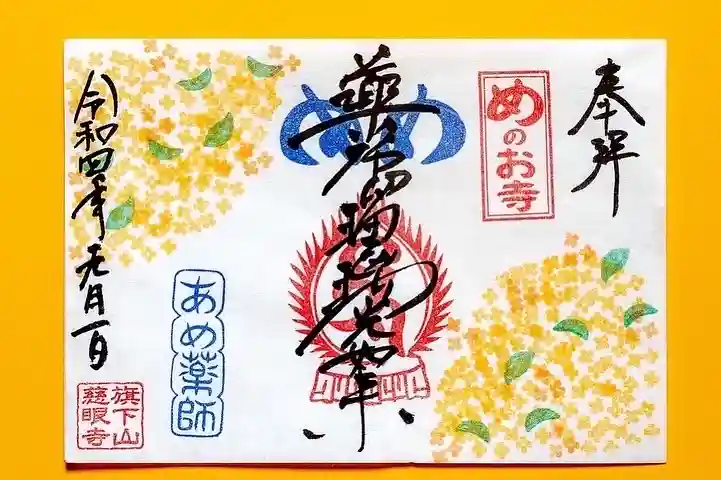 奉拝
めのお寺
め め
薬師瑠璃光如来
あめ薬師
令和四年九月一日
旗下山
慈眼寺